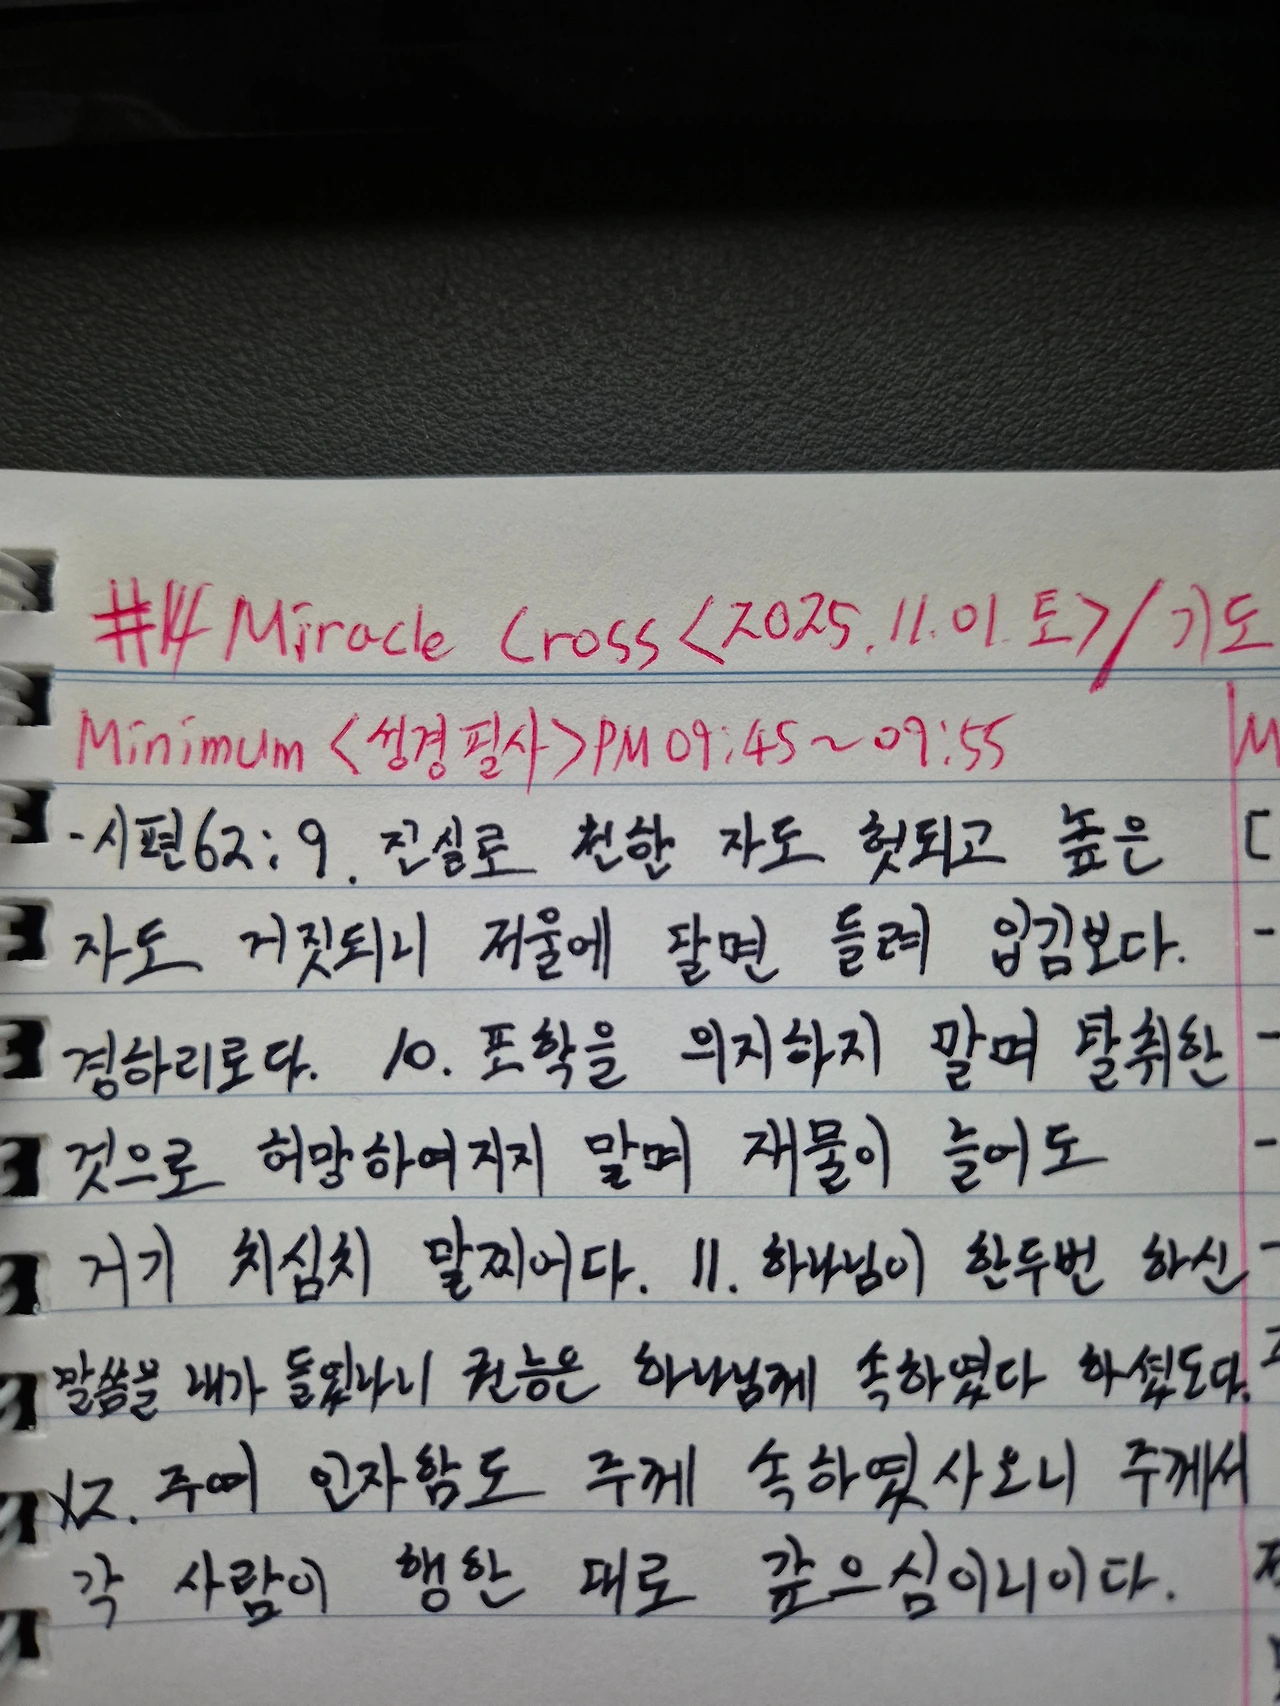 #14 Miracle Cross <2025.11.01.토> / 기도
Minimum <성경필사> PM 09:45~09:55
M
-시편62:9. 진실로 천한 자도 헛되고 높은
[
자도 거짓되니 저울에 달면 들려 입김보다.
-
경하리로다. 10. 포학을 의지하지 말며 탈취한
-
것으로 허망하여지지 말며 재물이 늘어도
-
거기 치심치 말찌어다. 11. 하나님이 한두번 하신
-
말씀을 내가 들었나니 권능은 하나님께 속하였다 하셨도다.
12. 주여 인자함도 주께 속하였사오니 주께서
각 사람이 행한 대로 갚으심이니이다.